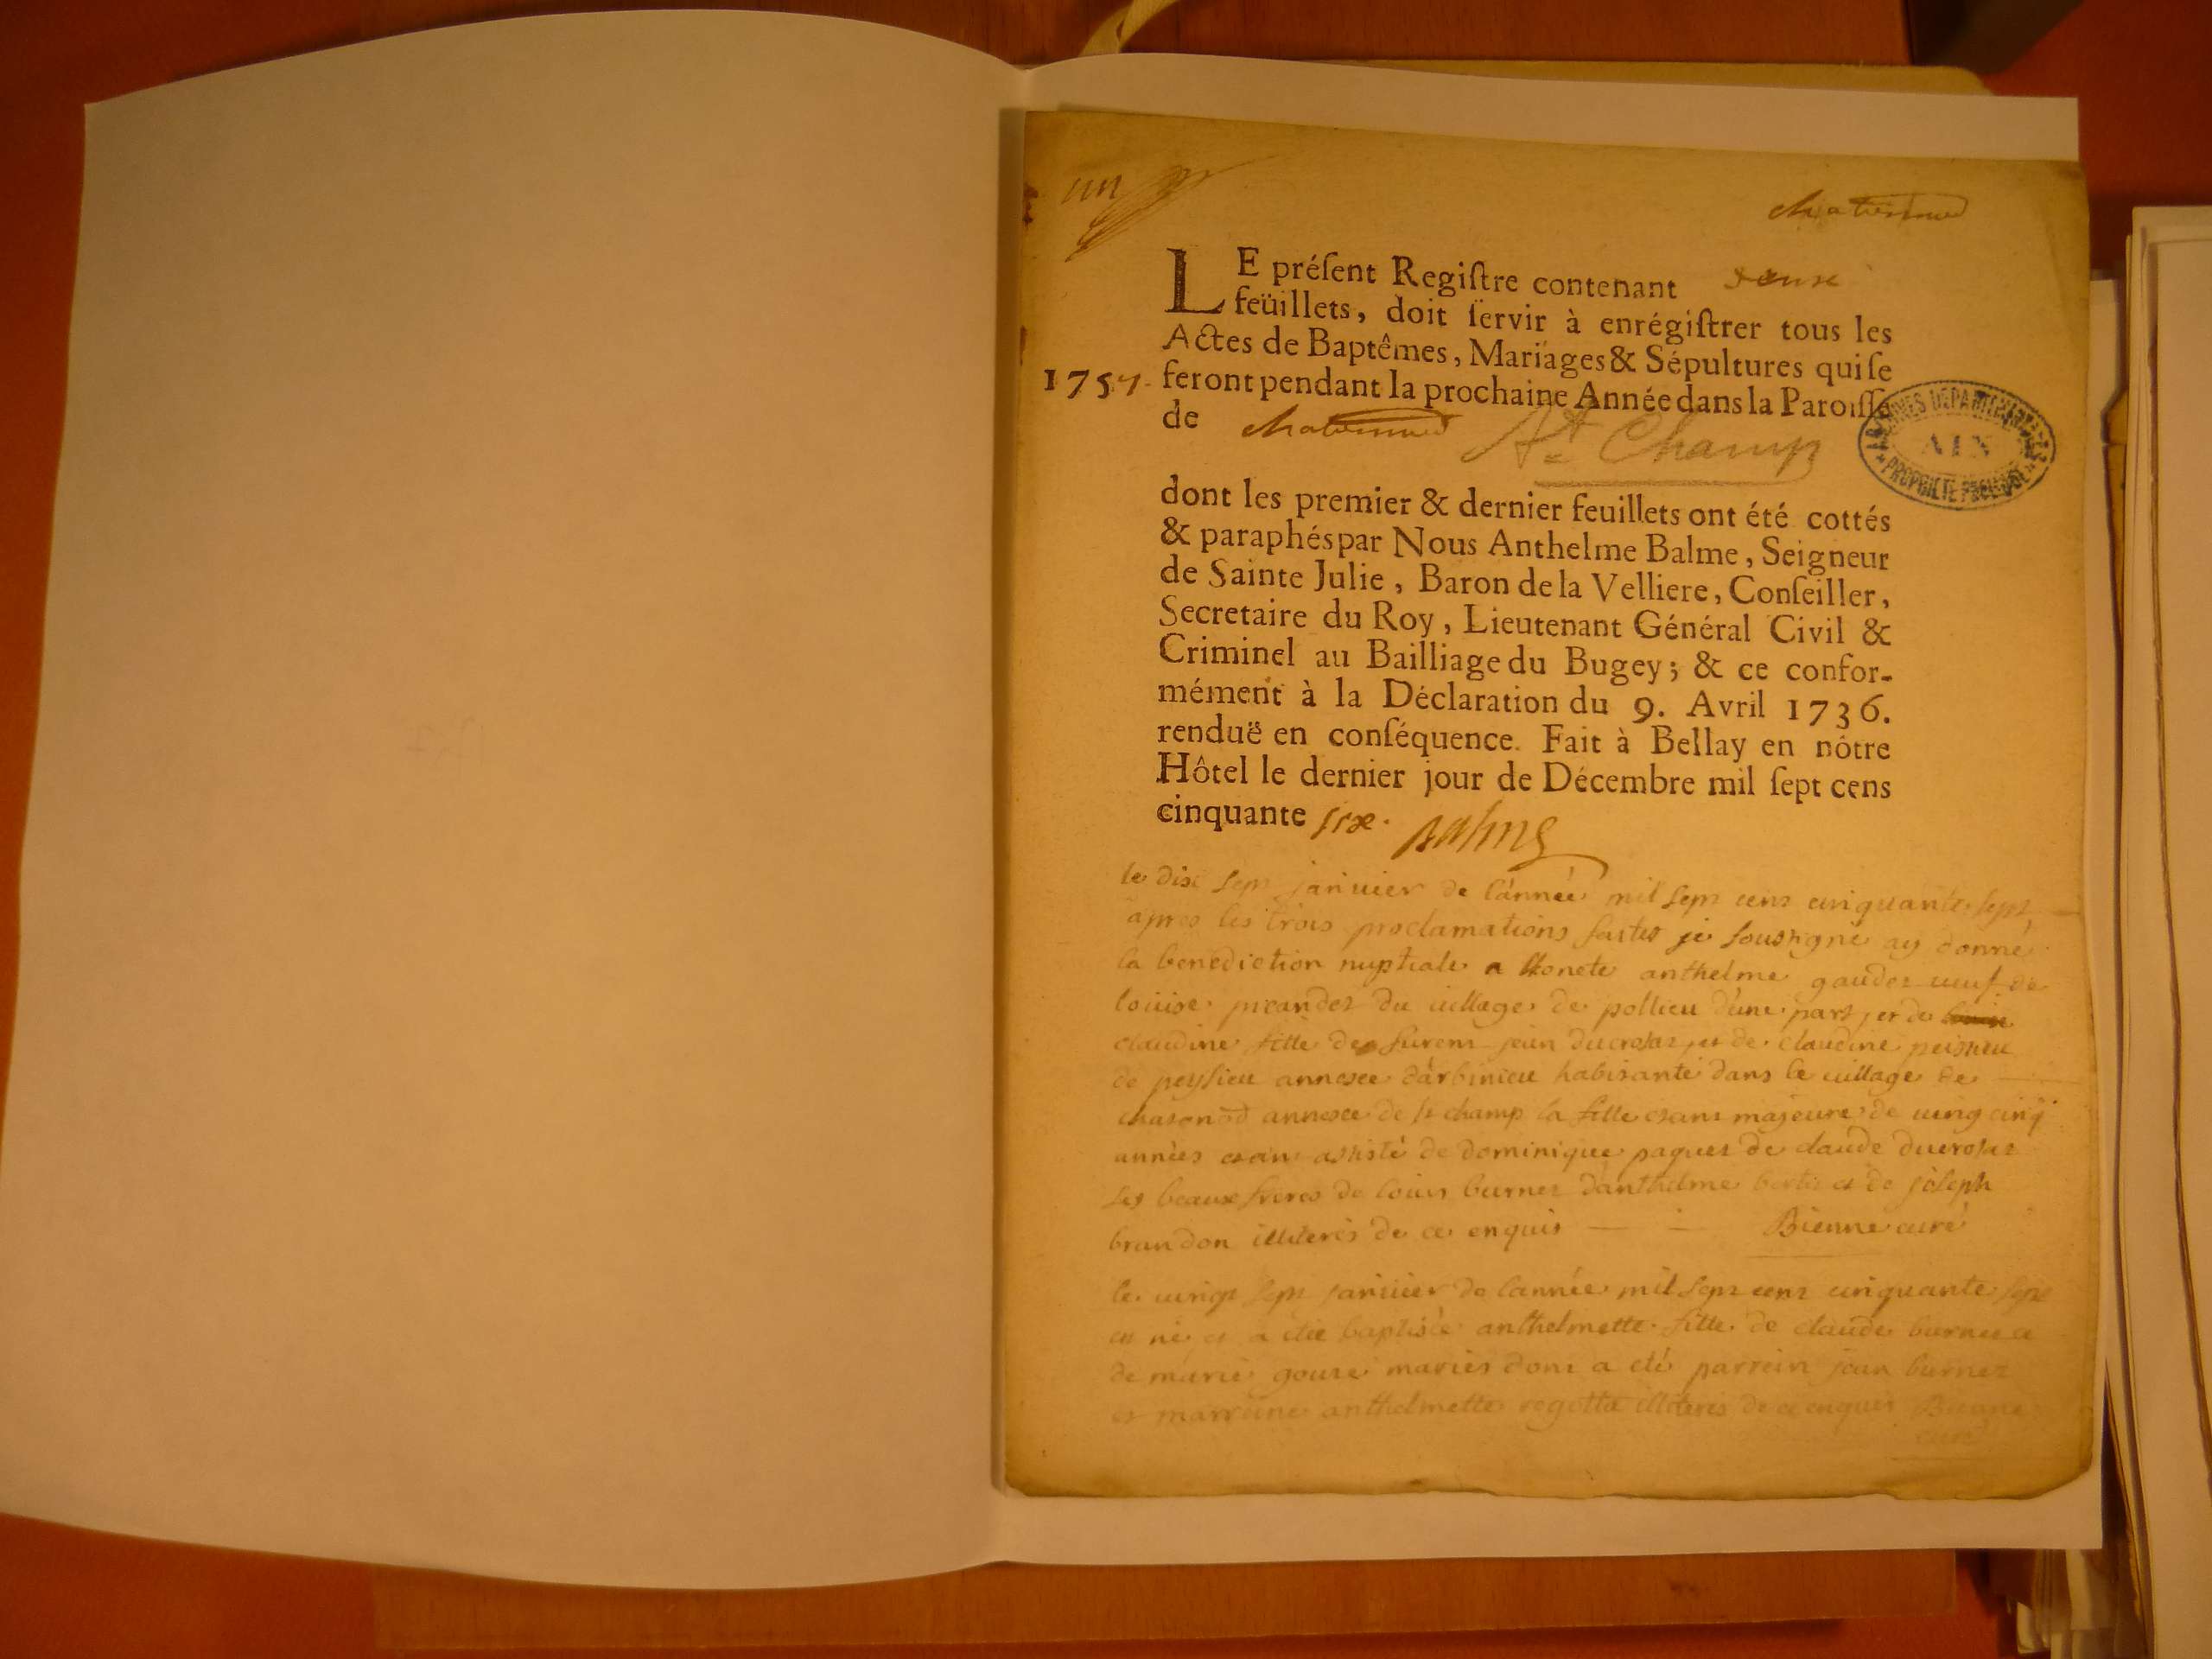 un
chatonod
LE préſent Regiſtre contenant douze
feüillets, doit ſervir à enrégiſtrer tous les
Actes de Baptêmes, Mariages & Sépultures qui ſe
1757. feront pendant la prochaine Année dans la Paroiſſe
de chatonod St Champ
ARCHIVES DEPARTEMENTALES
AIN
PROPRIÉTÉ PUBLIQUE
dont les premier & dernier feuillets ont été cottés
& paraphés par Nous Anthelme Balme, Seigneur
de Sainte Julie, Baron de la Velliere, Conſeiller,
Secretaire du Roy, Lieutenant Général Civil &
Criminel au Bailliage du Bugey; & ce confor-
mément à la Déclaration du 9. Avril 1736.
renduë en conſéquence. Fait à Bellay en nôtre
Hôtel le dernier jour de Décembre mil ſept cens
cinquante six. Balme
le dix sept janvier de l'année mil sept cens cinquante sept
apres les trois proclamations faites je soussigné ay donné
la benediction nuptiale a honete anthelme gaudet veuf de
louise du village de pollieu d'une part, et de
claudine fille de furent jean ducrosat et de claudine peisieu
de peysieu annexe d'arbinieu habitante dans le village de
chatonod annexe de st champ la fille etant majeure de vingt cinq
années etant assisté de dominique paquet de claude ducrosat
ses beaux freres de louis burnet d'anthelme et de joseph
brandon illiterés de ce enquis Bienne curé
le vingt sept janvier de l'année mil sept cens cinquante sept
est né et a été baptisée anthelmette fille de claude burnet et
de marie mariés dont a été parrein jean burnet
et marreine anthelmette illiterés de ce enquis Bienne
curé